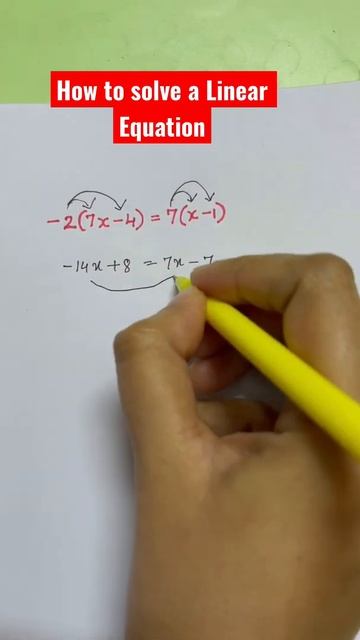 How to solve a Linear
Equation
-2(7x-4) = 7(x-1)
-14x+8 = 7x-7